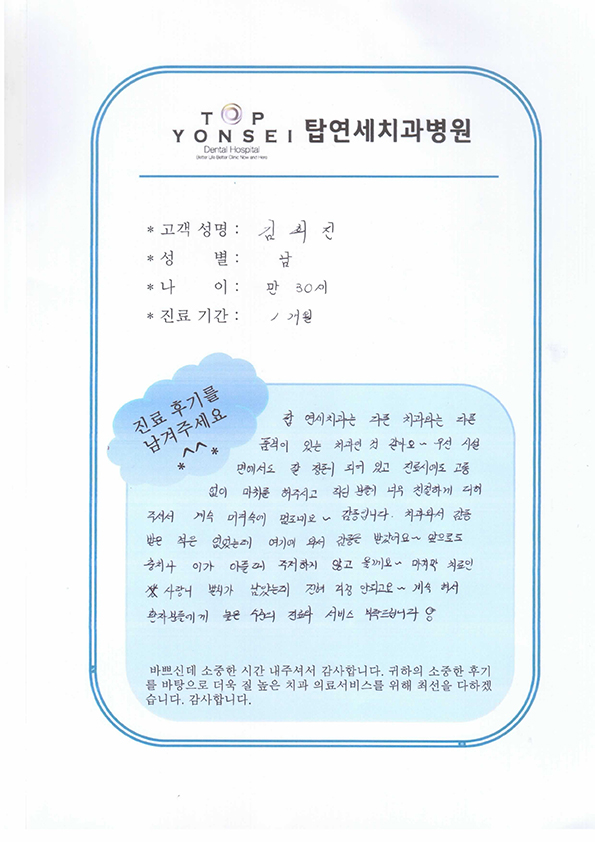 TOP
YONSEI 탑연세치과병원
Dental Hospital
Better Life Better Clinic Now and Here
* 고객 성명 : 김 희 진
* 성 별 : 남
* 나 이 : 만 30세
* 진료 기간 : 1개월
진료 후기를
남겨주세요
*^^*
탑 연세치과는 다른 치과와는 다른
품격이 있는 치과인 것 같아요~ 우선 시설
면에서도 잘 정돈이 되어 있고 진료시에도 고통
없이 마취를 해주시고 직원 분들이 너무 친절하게 대해
주셔서 계속 미소속에 머무네요~ 감동입니다. 치과와서 감동
받은 적은 없었는데 여기에 와서 감동을 받았어요~ 앞으로도
충치나 이가 아플때 주저하지 않고 올께요~ 마지막 치료인
사랑니 발치가 남았는데 전혀 걱정 안되고요~ 계속 해서
환자분들에게 높은 수준의 진료와 서비스 부탁드립니다
바쁘신데 소중한 시간 내주셔서 감사합니다. 귀하의 소중한 후기
를 바탕으로 더욱 질 높은 치과 의료서비스를 위해 최선을 다하겠
습니다. 감사합니다.